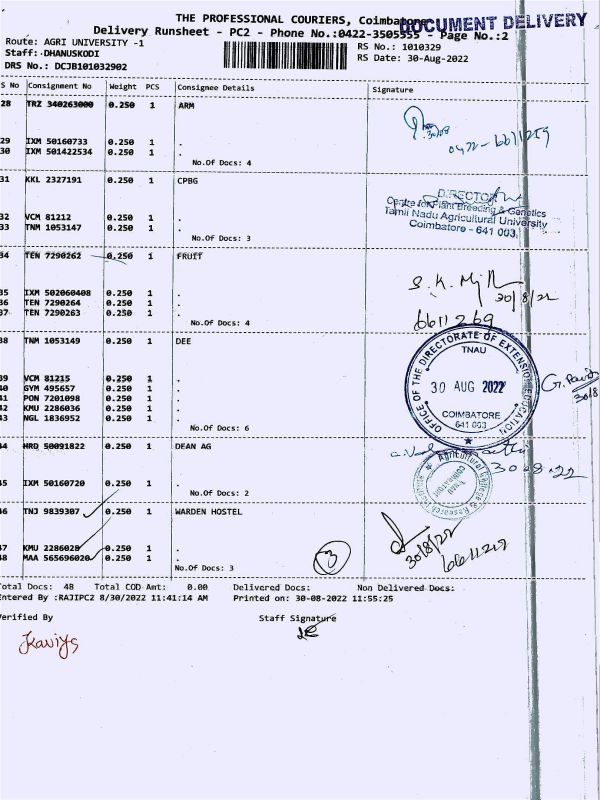 THE PROFESSIONAL COURIERS, Coimbatore
DOCUMENT DELIVERY
Delivery Runsheet - PC2 - Phone No.:0422-3505555 - Page No.:2
Route: AGRI UNIVERSITY -1
RS No.: 1010329
Staff: DHANUSKODI
RS Date: 30-Aug-2022
DRS No.: DCJB101032902
S No Consignment No Weight PCS Consignee Details Signature
28 TRZ 340263000 0.250 1 ARM
30/08
0422-6611259
29 IXM 50160733 0.250 1 .
30 IXM 501422534 0.250 1 .
No.Of Docs: 4
31 KKL 2327191 0.250 1 CPBG
DIRECTOR
Centre for Plant Breeding & Genetics
Tamil Nadu Agricultural University
Coimbatore - 641 003.
32 VCM 81212 0.250 1 .
33 TNM 1053147 0.250 1 .
No.Of Docs: 3
34 TEN 7290262 0.250 1 FRUIT
30/8/22
6611269
35 IXM 502060408 0.250 1 .
36 TEN 7290264 0.250 1 .
37 TEN 7290263 0.250 1 .
No.Of Docs: 4
38 TNM 1053149 0.250 1 DEE
OFFICE OF THE DIRECTORATE OF EXTENSION EDUCATION
TNAU
30 AUG 2022
COIMBATORE
641 003
39 VCM 81215 0.250 1 .
40 GYM 495657 0.250 1 .
41 PON 7201098 0.250 1 .
42 KMU 2286036 0.250 1 .
43 NGL 1836952 0.250 1 .
No.Of Docs: 6
44 HRD 50091822 0.250 1 DEAN AG
30.08.22
Agricultural College & Research Institute
TNAU
COIMBATORE
45 IXM 50160720 0.250 1 .
No.Of Docs: 2
46 TNJ 9839307 0.250 1 WARDEN HOSTEL
30/8/22
6611219
47 KMU 2286028 0.250 1 .
48 MAA 565696020 0.250 1 .
No.Of Docs: 3
3
Total Docs: 48 Total COD Amt: 0.00 Delivered Docs: Non Delivered Docs:
Entered By :RAJIPC2 8/30/2022 11:41:14 AM Printed on: 30-08-2022 11:55:25
Verified By Staff Signature
Kaviya